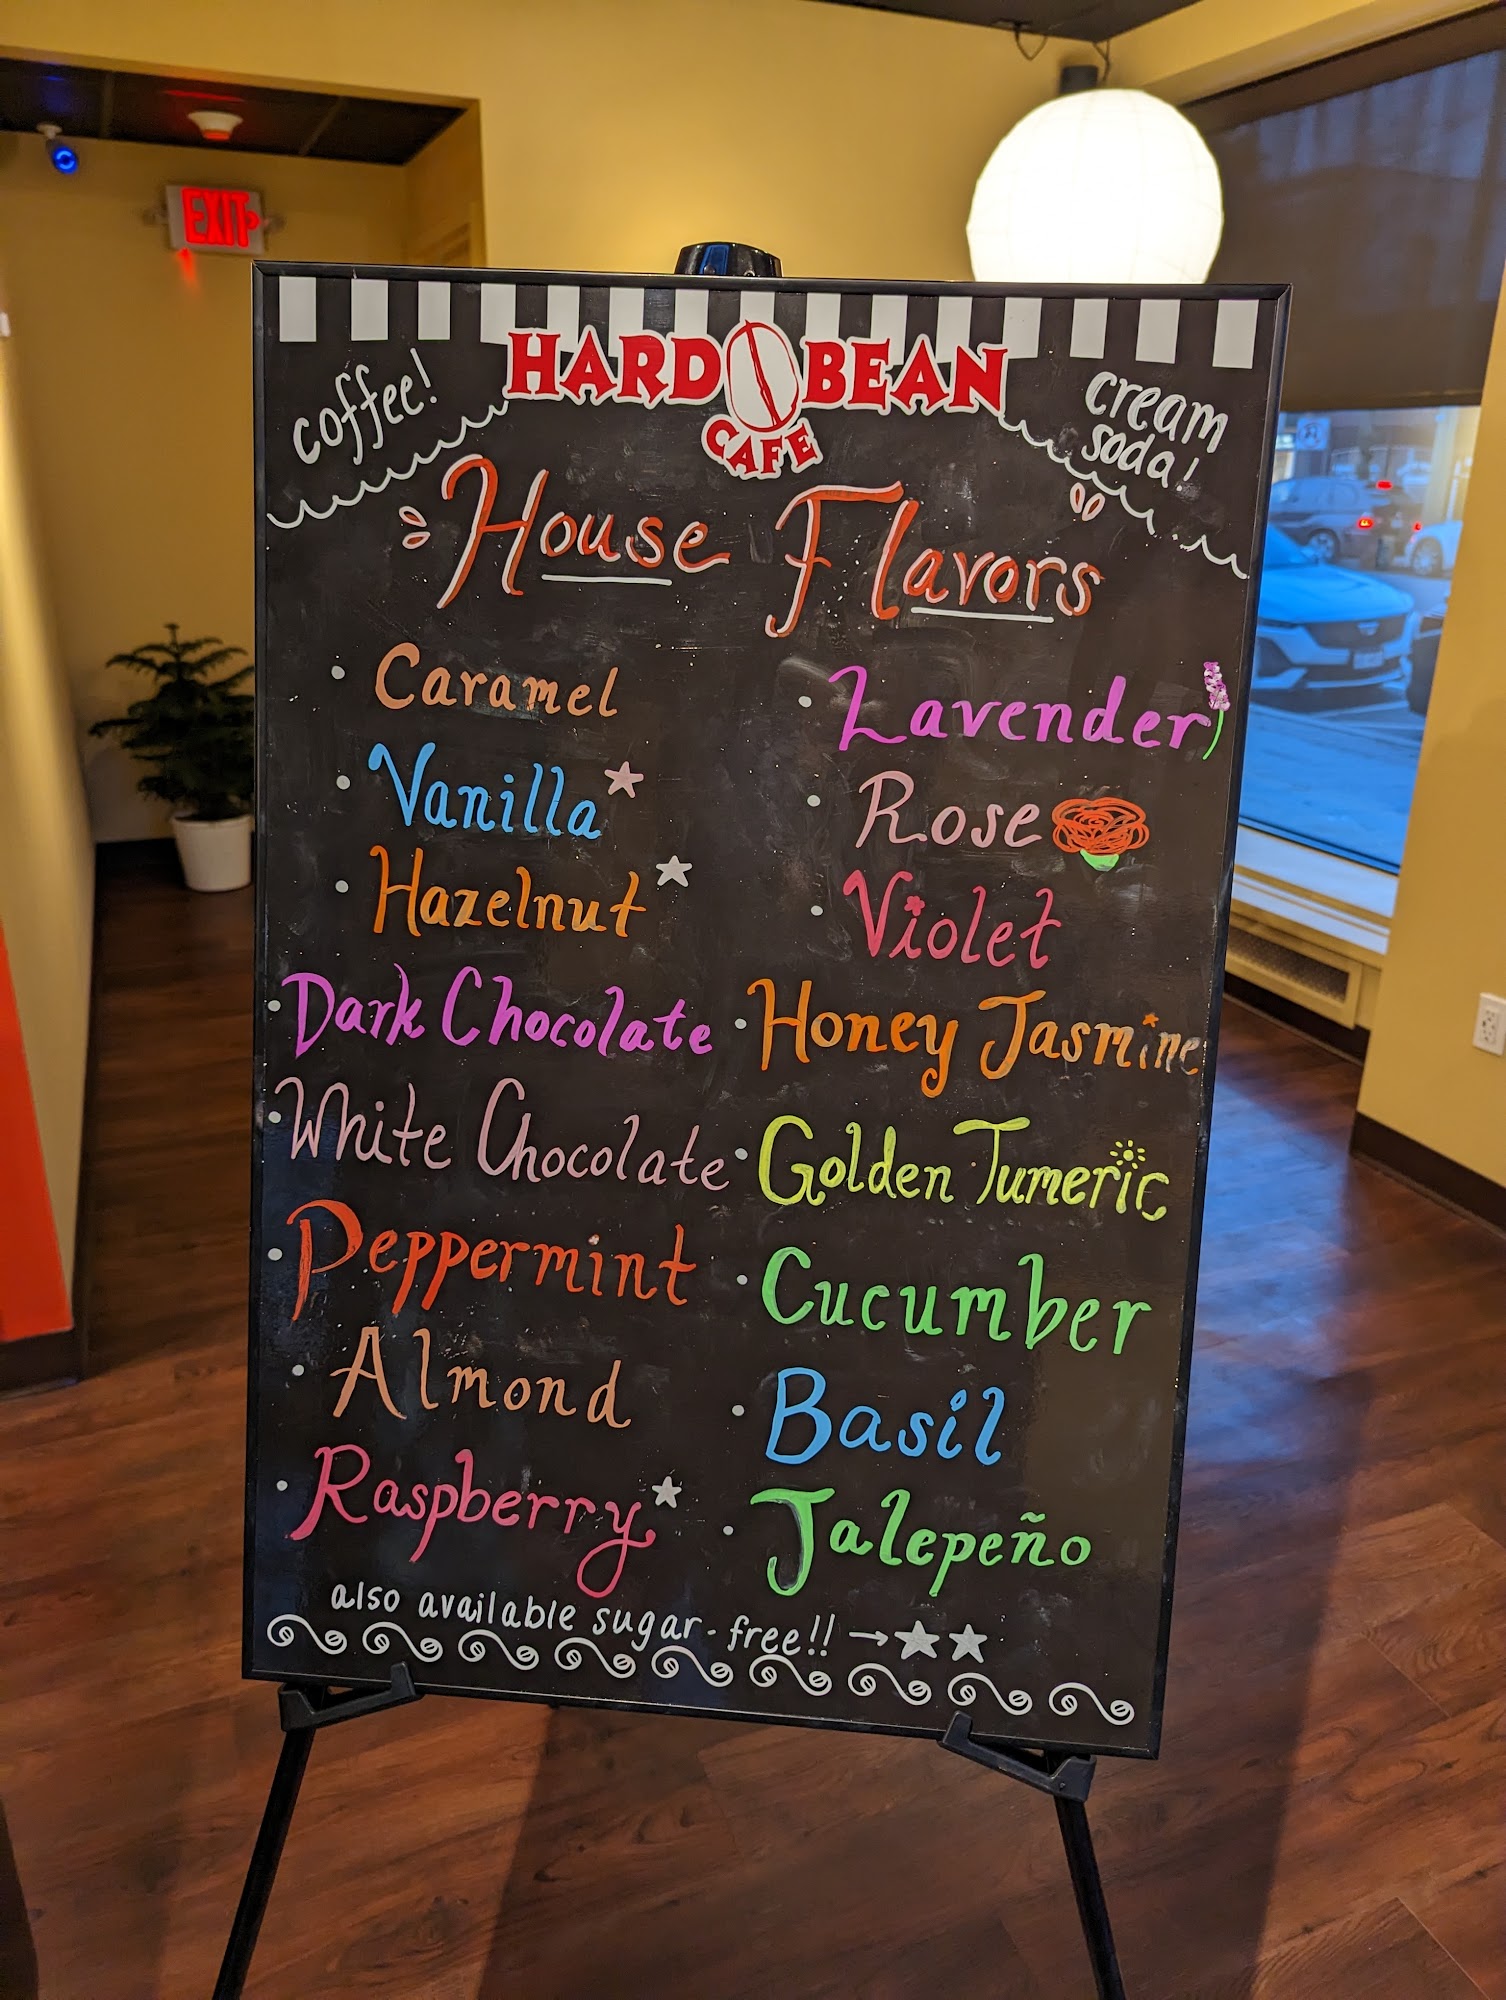 EXIT
HARD BEAN
CAFE
coffee!
cream
soda!
House Flavors
Caramel
Vanilla
Hazelnut
Dark Chocolate
White Chocolate
Peppermint
Almond
Raspberry
Lavender
Rose
Violet
Honey Jasmine
Golden Tumeric
Cucumber
Basil
Jalepeño
also available sugar-free!! →★★